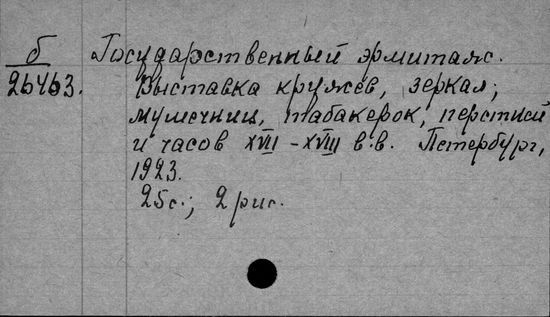 б Государственный эрмитаж.
26463. Выставка кружев, зеркал,
мушечниц, табакерок, перстней
и часов XVII - XVIII в.в. Петербург,
1923.
25с.; 2 рис.